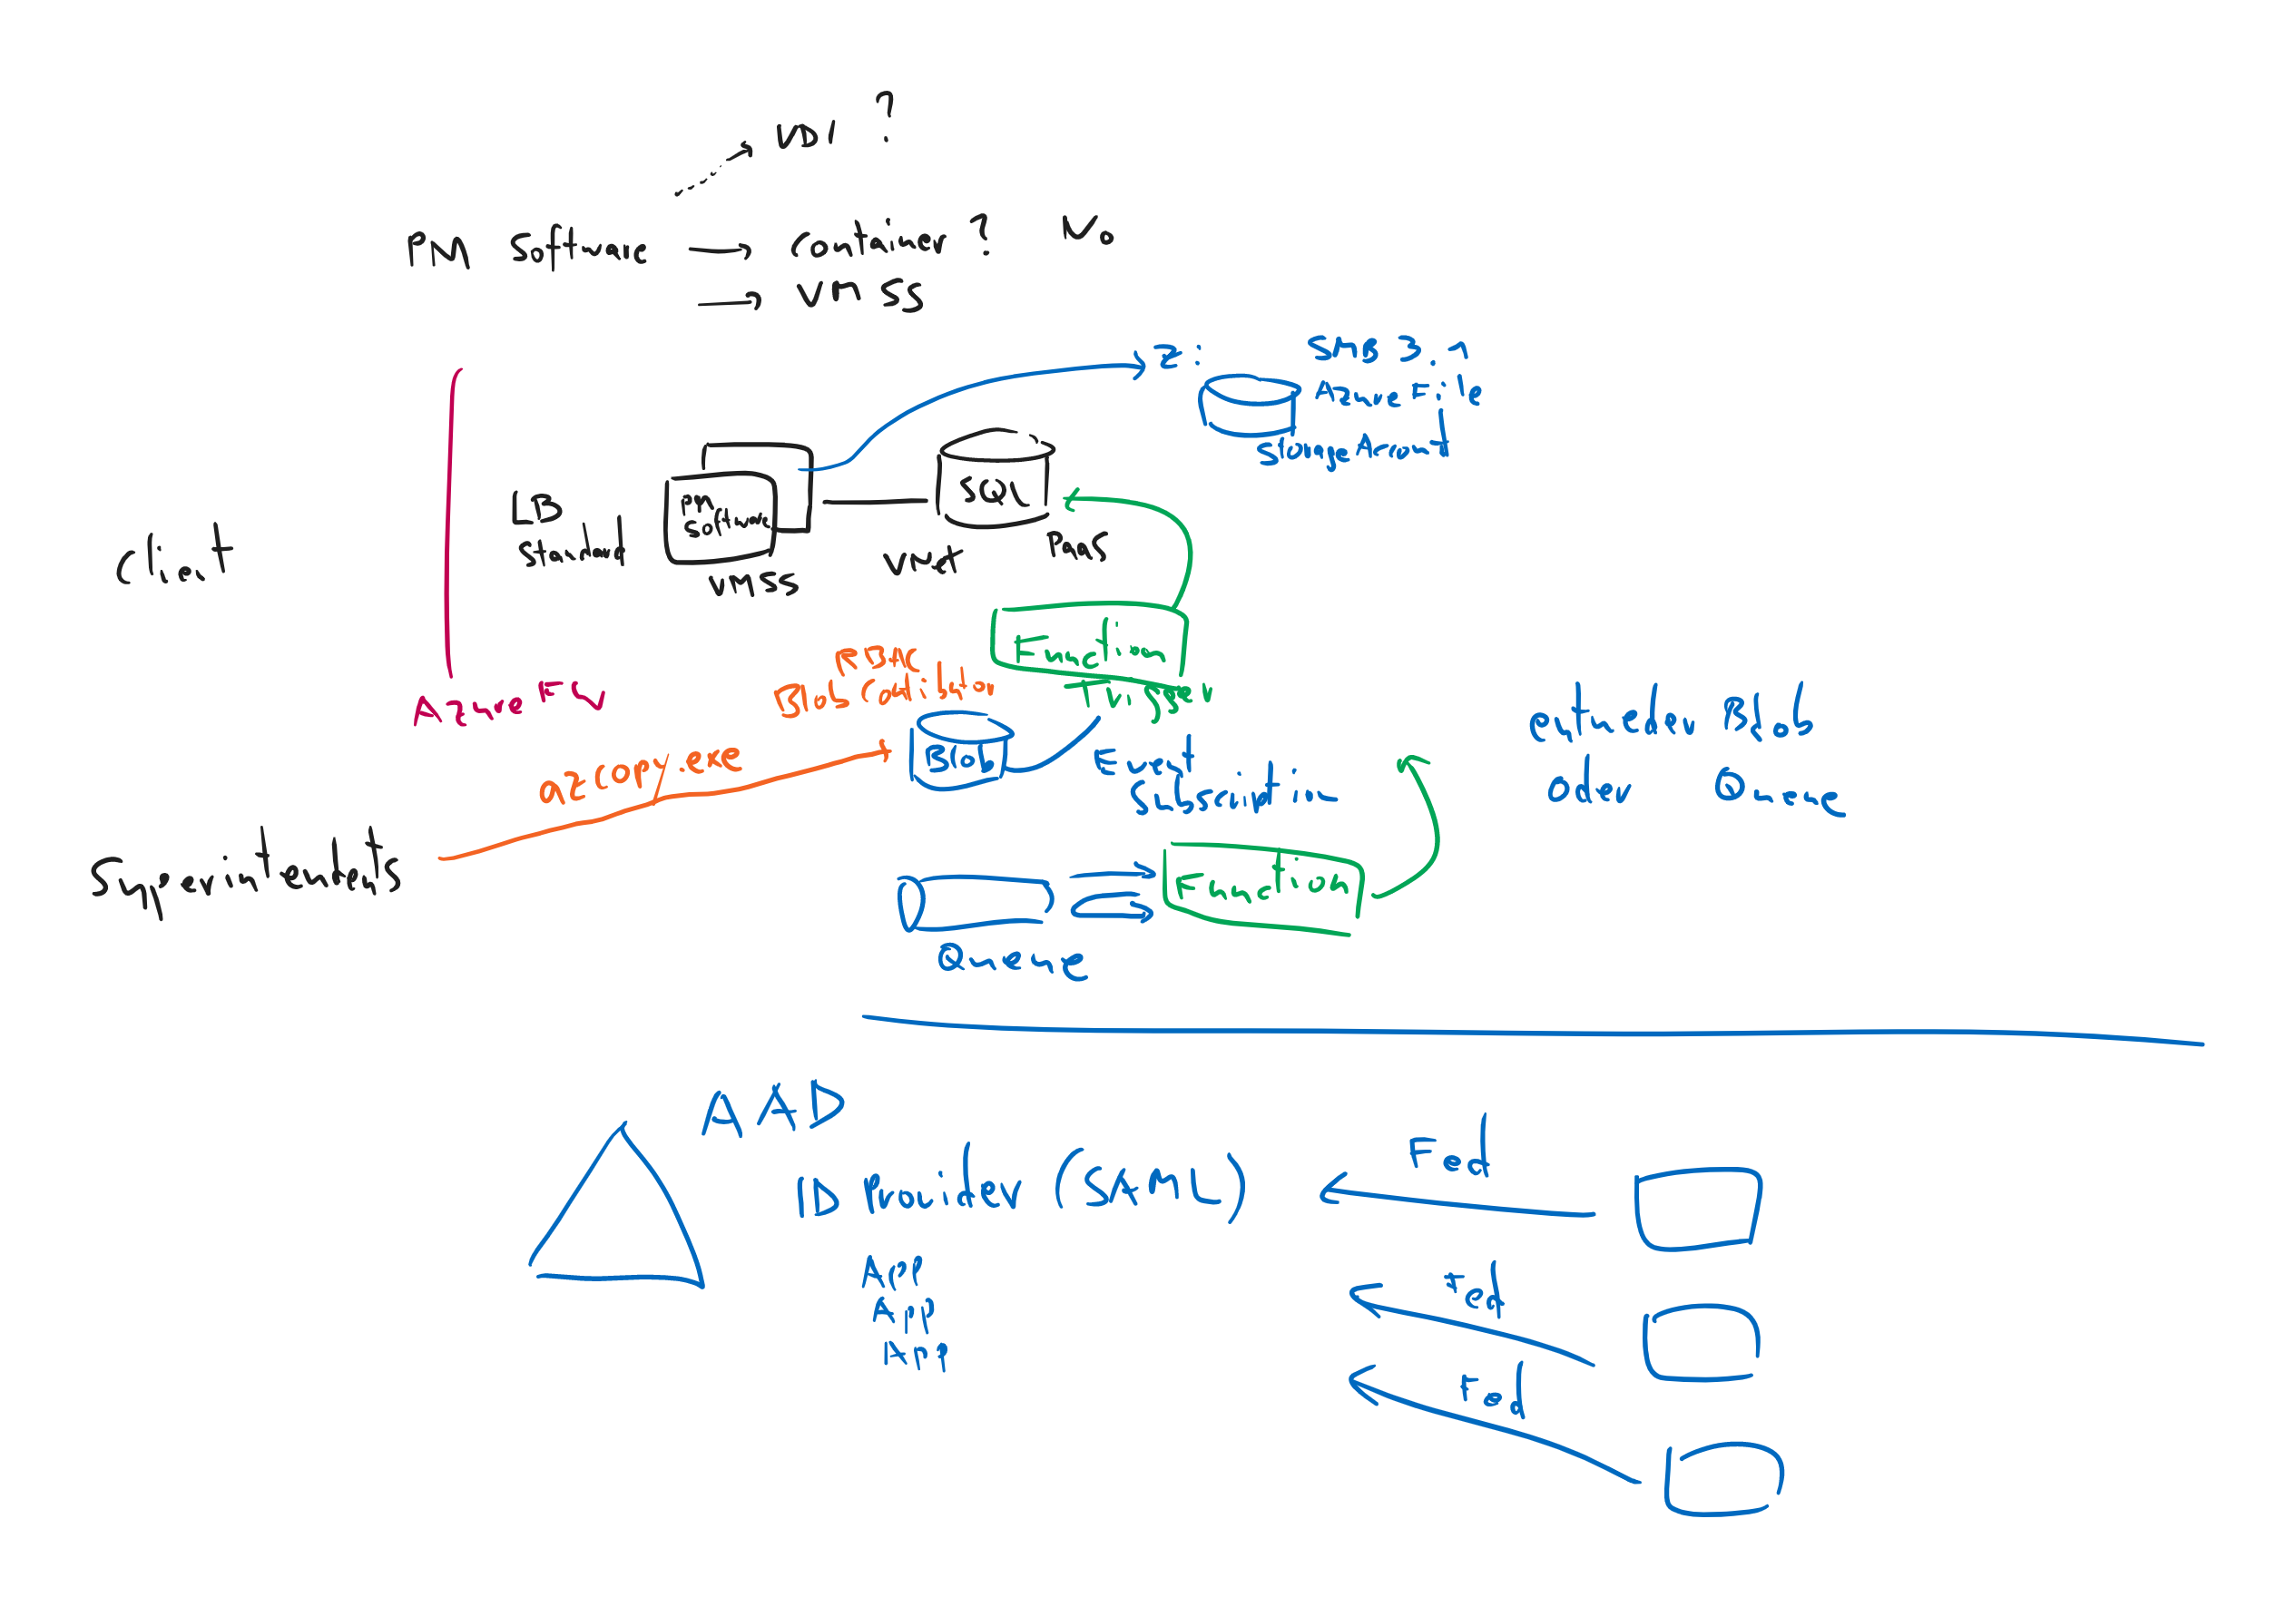 VDI ?
PM Software → Container? V0
→ VMSS
Z: SMB 3.1
Azure File
Storage Account
LB
Standard
PM
Software
SQL
VMSS
Vnet
PaaS
Client
Function
Trigger
RBAC
Blob Contributor
Azure FW
azcopy.exe
Blob
Event
Subscription
entweder Blob
oder Queue
Syperintendents
Function
Queue
AAD
ID Provider (SAML)
App
App
App
Fed
Fed
Fed